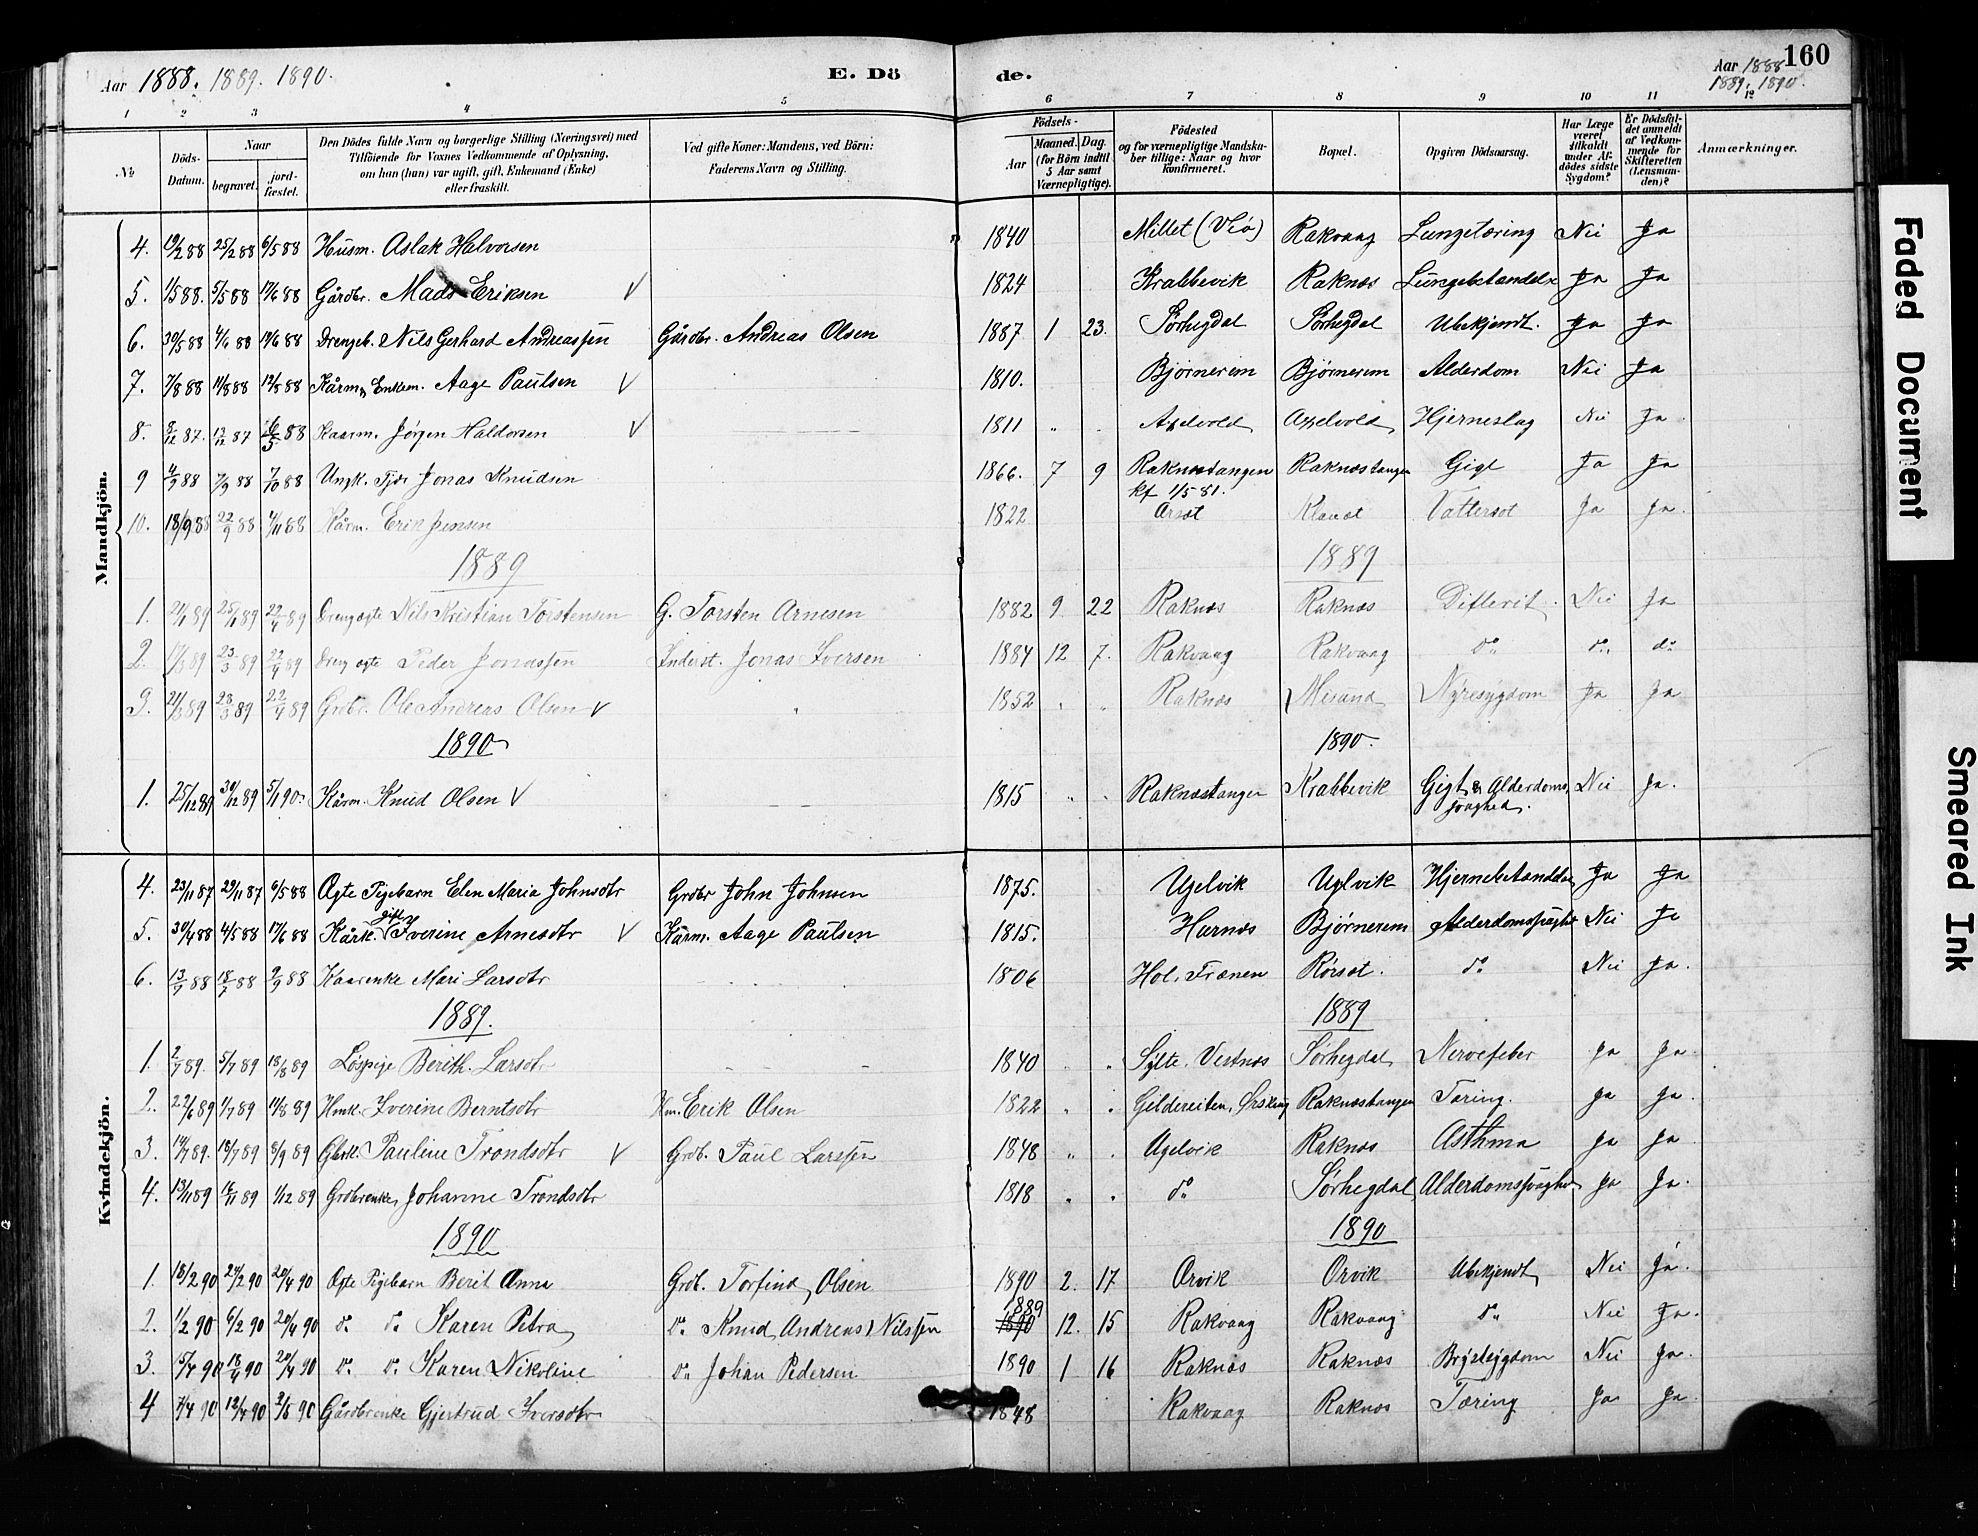 Aar 1888. 1889. 1890. E. Dö de. Aar 1888 160
1889. 1890.
1 2 3 4 5 6 7 8 9 10 11 12
№ Döds-Datum. Naar begravet. jordfæstet. Den Dödes fulde Navn og borgerlige Stilling (Næringsvei) med Tilföiende for Voxnes Vedkommende af Oplysning, om han (hun) var ugift, gift, Enkemand (Enke) eller fraskilt. Ved gifte Koner: Mandens, ved Börn: Faderens Navn og Stilling. Födsels- Aar Maaned. Dag. (for Börn indtil 5 Aar samt Værnepligtige). Födested og for værnepligtige Mandskaber tillige: Naar og hvor konfirmeret. Bopæl. Opgiven Dödsaarsag. Har Læge været tilkaldt under Afdödes sidste Sygdom? Er Dödsfaldet anmeldt af Vedkommende for Skifteretten (Lensmanden)? Anmærkninger.
Mandkjön.
4. 19/2 88 25/2 88 6/5 88 Husm. Aslak Halvorsen 1840 Millet (Veø) Rakvaag Lungetæring Nei Ja
5. 1/5 88. 5/5 88 17/6 88 Gårdbr. Mads Eriksen V 1824 Krabbevik Raknæs Lungebetændelse Ja Ja
6. 30/5 88 4/6 88 17/6 88 Drengeb. Nils Gerhard Andreassen Gårdbr. Andreas Olsen 1887 1 23. Sørhegdal Sørhegdal Ubekjendt. Ja Ja
7. 7/8 88 11/8 88 12/8 88 Kårm., Enkem. Aage Paulsen V 1810. Bjørnerem Bjørnerem Alderdom Nei Ja
8. 8/12 87. 13/12 87 6/5 88 Kaarm. Jørgen Haldorsen V 1811 " . Axelvold Axelvold Hjerneslag Nei Ja.
9 4/9 88 7/9 88 7/10 88 Ungk. Tjæn Jonas Knudsen 1866. 7 9 Raknæstangen Raknæstangen Gigt Ja Ja
kf 1/5 81.
10. 18/9 88 22/9 88 4/11 88 Kårm. Erik Jensen 1822 Vattersot Ja Ja.
1889 1889
1. 21/1 89 25/1 89 22/4 89 Dreng ægte Nils Kristian Torstensen G. Torsten Arnesen 1882 9 22 Raknæs Raknæs Difterit. Nei Ja
2. 17/3 89 23/3 89 22/4 89 Dreng ægte Peder Jonassen Inderst. Jonas Iversen 1884 12 7. Rakvaag Rakvaag do do do
3. 21/3 89 23/3 89 22/4 89 Grdbr. Ole Andreas Olsen V " 1852 " " Raknæs Misund Nyresygdom Ja Ja
1890 1890.
1. 25/12 89 30/12 89 5/1 90. Kårm. Knud Olsen V 1815 " . Raknæstangen Krabbevik Gigt & Alderdoms Nei Ja.
svaghed.
Kvindekjön.
4. 23/11 87 29/11 87 6/5 88 Ægte Pigebarn Elen Maria Johnsdtr Grdbr John Johnsen 1875. Ugelvik Uglvik Hjernebetændelse Ja Ja
gift
5. 30/4 88 4/5 88 17/6 88 Kårk. Iverine Arnesdtr V Kårm. Aage Paulsen 1815. Harnæs Bjørnerem Alderdomssvaghed Nei Ja
6. 13/7 88 18/7 88 2/9 88 Kaarenke Mari Larsdtr 1806 Hol, Frænen Rørset. do Nei Ja.
1889. 1889
1. 2/7 89. 5/7 89 18/8 89 Løspige Berith. Larsdtr 1840 . Sylte. Vestnæs Sørhegdal Nervefeber Ja Ja.
2. 22/6 89 1/7 89 11/8 89 Hmk. Iverine Berntsdtr Hm. Erik Olsen 1822 " . Gildereiten, Ørskoug Raknæstangen Tæring. Ja Ja.
3. 14/7 89. 18/7 89 8/9 89 Gbrk. Pauline Trondsdtr V Grdb. Paul Larssen 1848 " . Ugelvik Raknæs Asthma Ja Ja
4. 13/11 89 16/11 89 1/12 89 Grdbrenke, Johanne Trondsdtr 1818 " . do Sørhegdal Alderdomssvaghed Ja Ja.
1890 1890
1. 18/2 90 24/2 90 20/4 90 Ægte Pigebarn Berit Anna Grdb. Torfind Olsen 1890 2. 17 Orvik Orvik Ubekjendt Nei Ja.
1889
2. 1/2 90 6/2 90 20/4 90 do do Karen Petra do Knud Andreas Nilssen 1890 12. 15 Rakvaag Rakvaag do Nei Ja.
3. 15/4 90 18/4 90 20/4 90 do do Karen Nikoline do Johan Pedersen 1890 1 16 Raknæs Raknæs Brystsygdom Nei Ja.
4 7/4 90 12/4 90 Gårdbrenke Gjertrud Iversdtr 1848 Rakvaag Raknæs Tæring Ja Ja
Faded Document
Smeared Ink